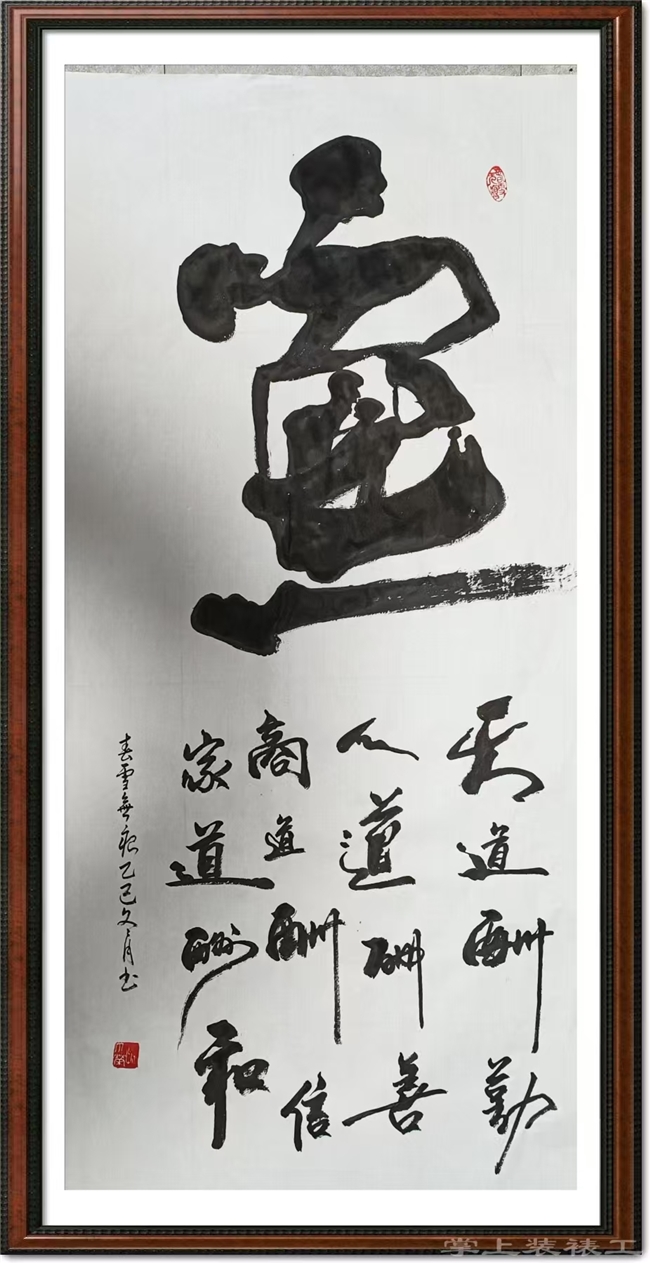 天道酬勤
人道酬善
商道酬信
家道酬和
春雪無痕乙巳文月书
掌上装裱工